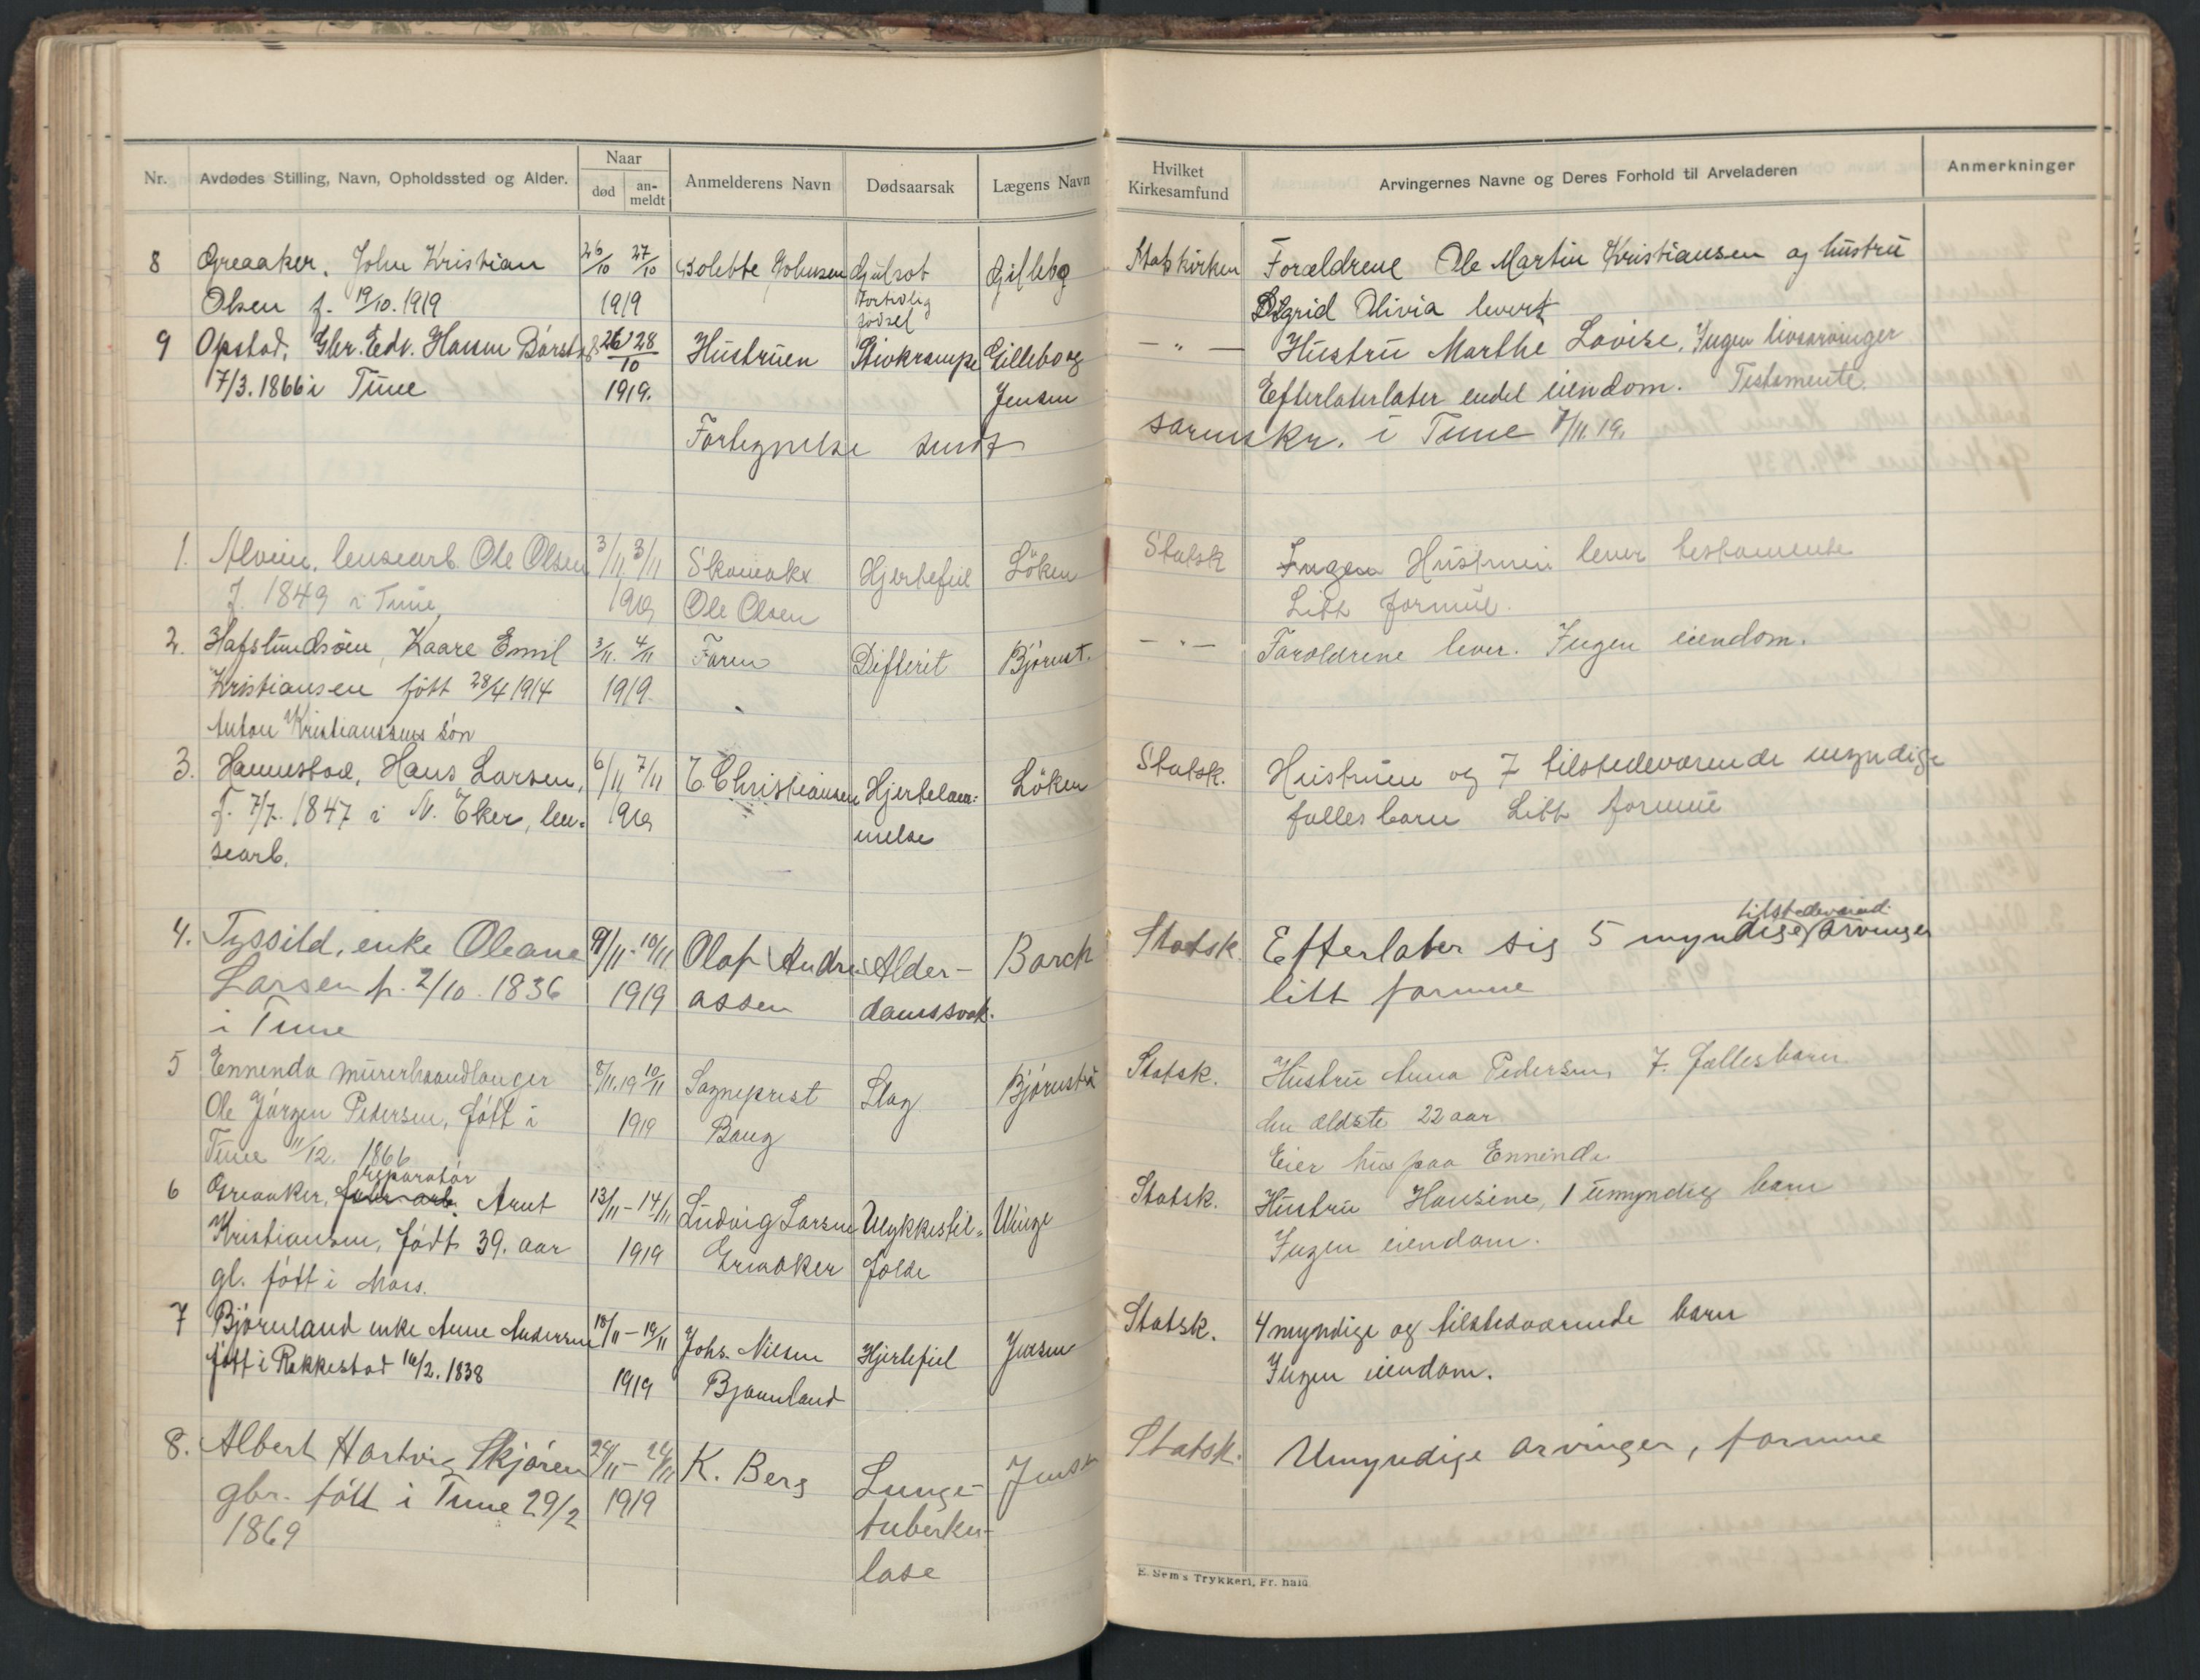 Nr.
Avdødes Stilling, Navn, Opholdssted og Alder.
Naar
død
an-
meldt
Anmelderens Navn
Dødsaarsak
Lægens Navn
Hvilket
Kirkesamfund
Arvingernes Navne og Deres Forhold til Arveladeren
Anmerkninger
8 Greaaker, John Kristian 26/10 27/10 Bolette Johnsen Gulsot Gillebg Statskirken Forældrene Ole Martin Kristiansen og hustru
Olsen f. 19/10. 1919 1919 Fortidlig fødsel Sigrid Olivia lever
9 Opstad, Gbr. Edv. Hansen 26 28/10 Hustruen Stivkrampe Gilleborg — " — Hustru Marthe Lovise. Ingen livsarvinger
7/3. 1866 i Tune 1919. Jensen Efterlaterlater endel eiendom. Testamente.
Fortegnelse sendt sorenskr. i Tune 7/11.19.
1. Alveim, lensearb. Ole Olsen 3/11 3/11 Skomaker Hjertefeil Löken Statsk Ingen Hustruen lever testamente
f. 1849 i Tune 1919 Ole Olsen Litt formue.
2. Hafslundsöen, Kaare Emil 3/11. 4/11 Faren Difterit Bjørnst. — " — Forældrene lever. Ingen eiendom.
Kristiansen født 28/4 1914 1919.
Anton Kristianssens søn
3. Hannestad, Hans Larsen, 6/11 7/11 E. Christiansen Hjertelam- Löken Statsk. Hustruen og 7 tilstedeværende myndige
f. 7/7. 1847 i N. Eker, len- 1919 melse fællesbarn Litt formue
searb.
4. Tyssild, enke Oleane 9/11 - 10/11 Olaf Andre- Alder- Borch Statsk. Efterlater sig 5 myndige tilstedeværend. arvinger
Larsen f. 2/10. 1836 1919 assen domssvak. litt formue
i Tune
5 Enninda murerhaandlanger 8/11.19 10/11 Sogneprest Slag Bjørnstad Statsk. Hustru Anna Pedersen, 7. fællesbarn
Ole Jørgen Pedersen, født i 1919 Baug den ældste 22 aar
Tune 11/12. 1866 Eier hus paa Enninda
6 Greaaker, fabr. arb. reparatør Arnt 13/11 - 14/11 Ludvig Larsen Ulykkestil- Winge Statsk. Hustru Hansine, 1 umyndig barn
Kristiansen, født 39. aar 1919 Greaaker fælde Ingen eiendom.
gl. født i Moss.
7 Bjørnland enke Anne Andersen 18/11 - 19/11 Johs. Nilsen Hjertefeil Jensen Statsk. 4 myndige og tilstedværende barn
født i Rakkestad 16/2. 1838 1919 Bjørnland Ingen eiendom.
8. Albert Hartvig Skjøren 24/11 - 24/11 K. Berg Lunge- Jensen Statsk. Umyndige arvinger, formue
gbr. født i Tune 29/2 1919 tuberku-
1869 lose
E. Sem's Trykkeri, Fr. hald.